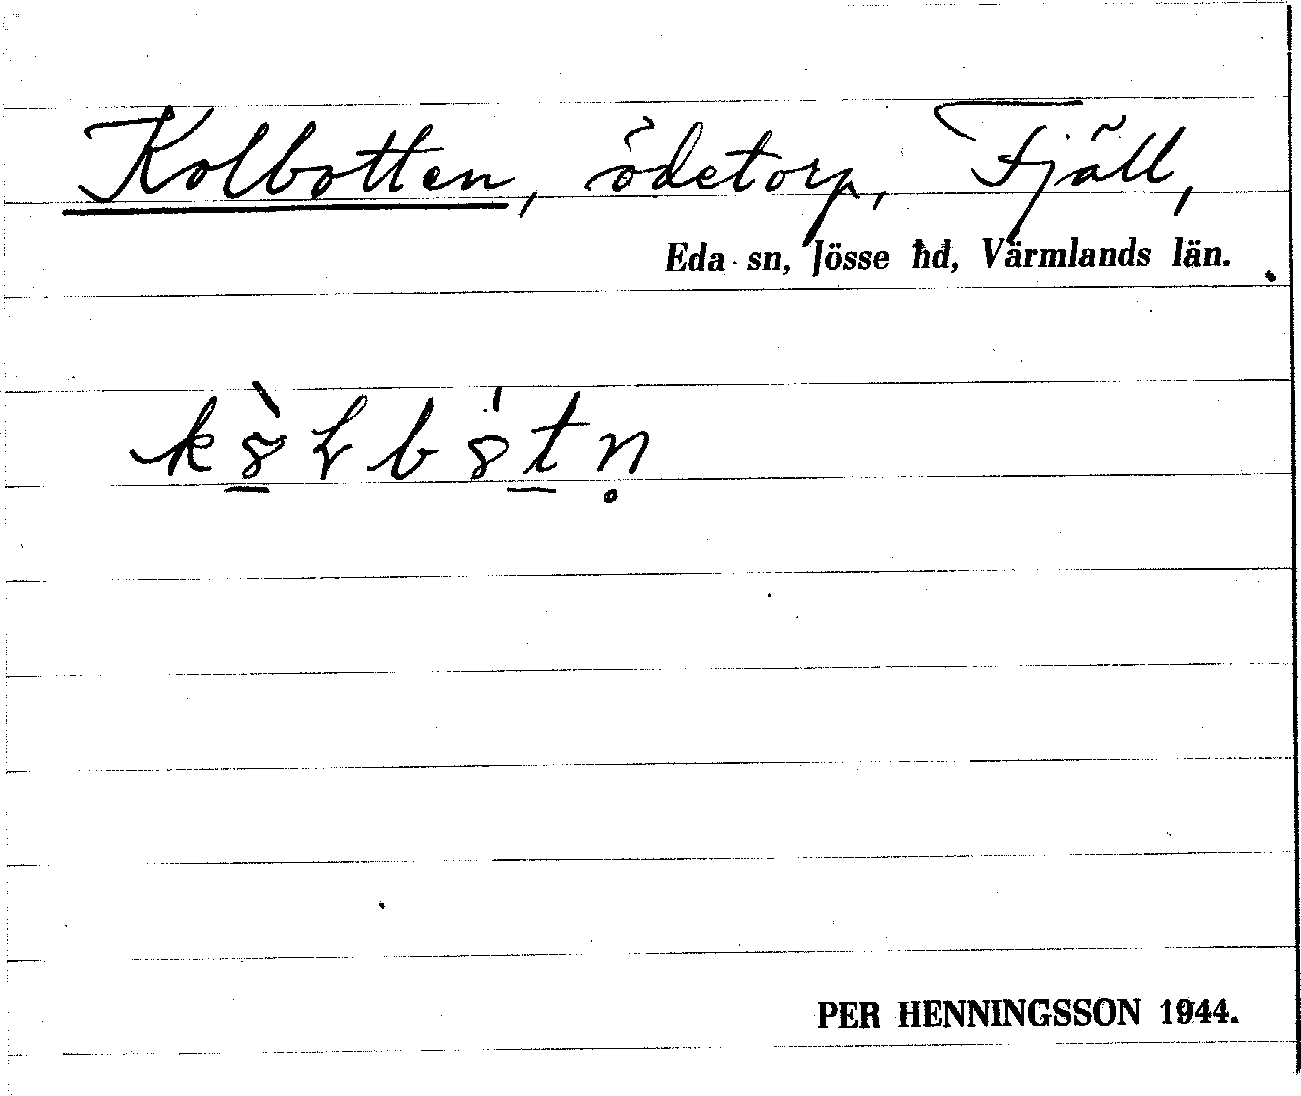 Kolbotten, ödetorp, Fjäll,
Eda sn, Jösse hd, Värmlands län.
PER HENNINGSSON 1944.